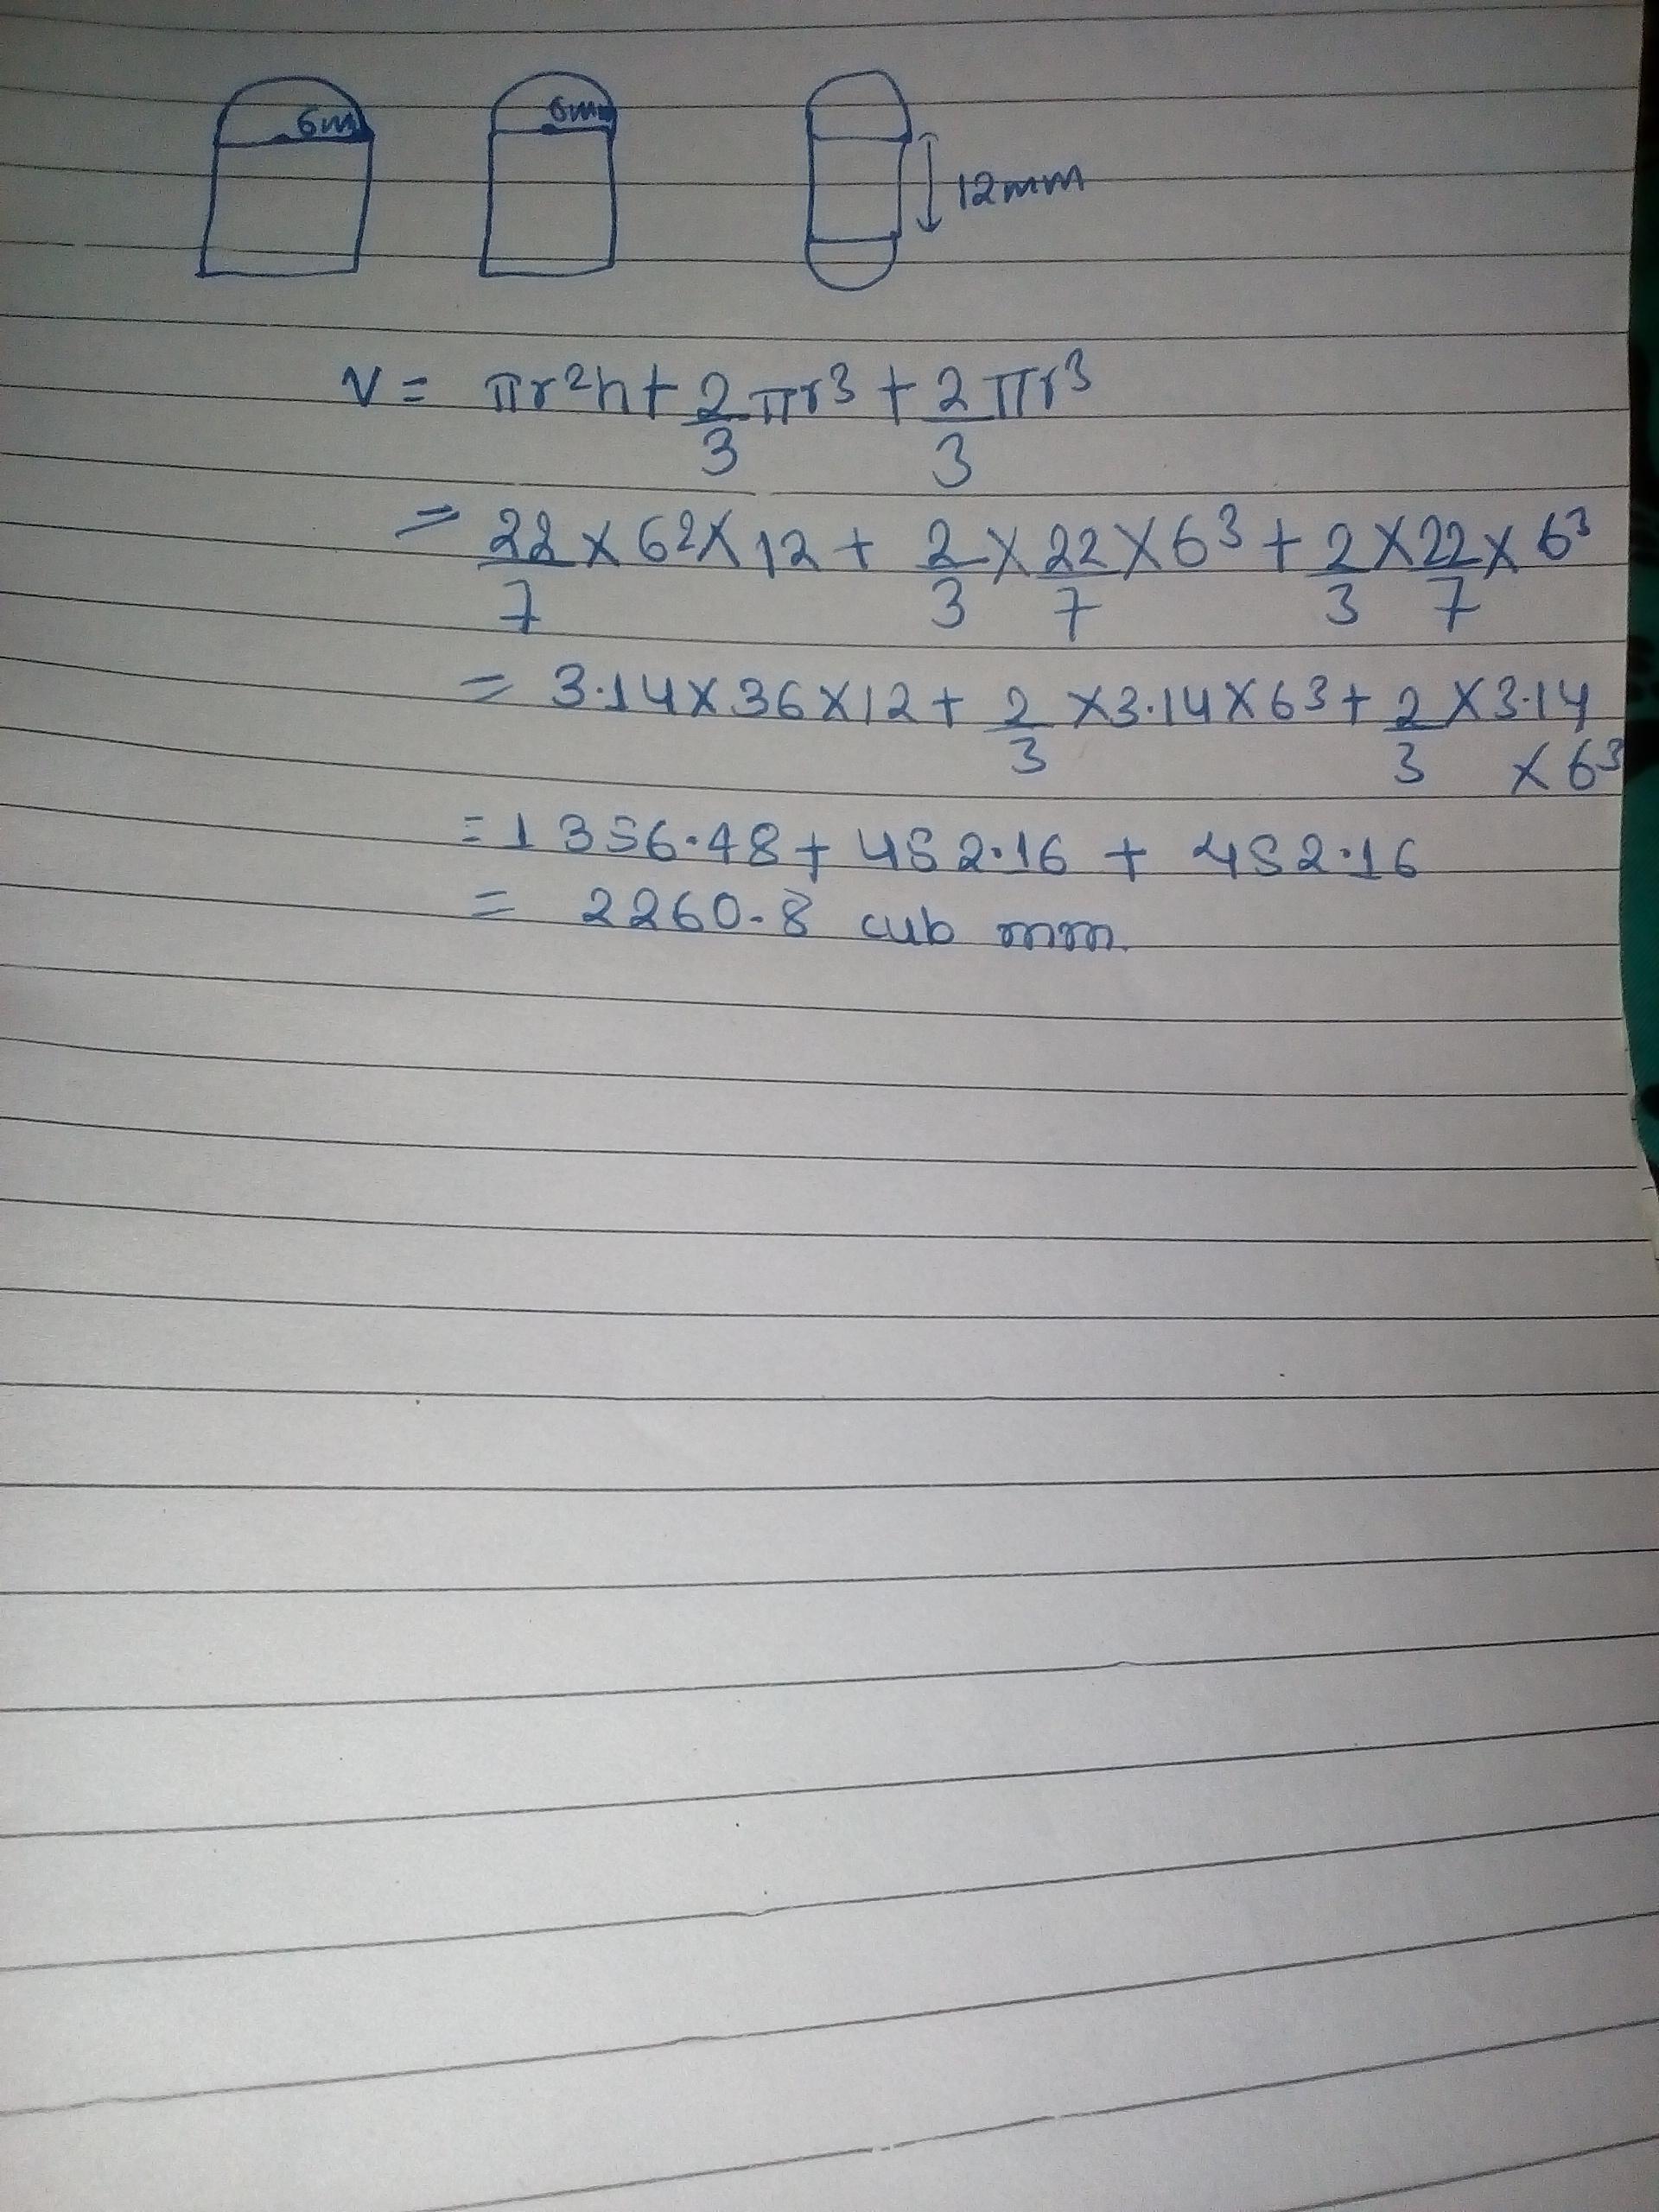 6m 6m
12mm
V = πr²h + 2/3 πr³ + 2/3 πr³
= 22/7 × 6² × 12 + 2/3 × 22/7 × 6³ + 2/3 × 22/7 × 6³
= 3.14 × 36 × 12 + 2/3 × 3.14 × 6³ + 2/3 × 3.14
× 6³
= 1356.48 + 452.16 + 452.16
= 2260.8 cub mm.